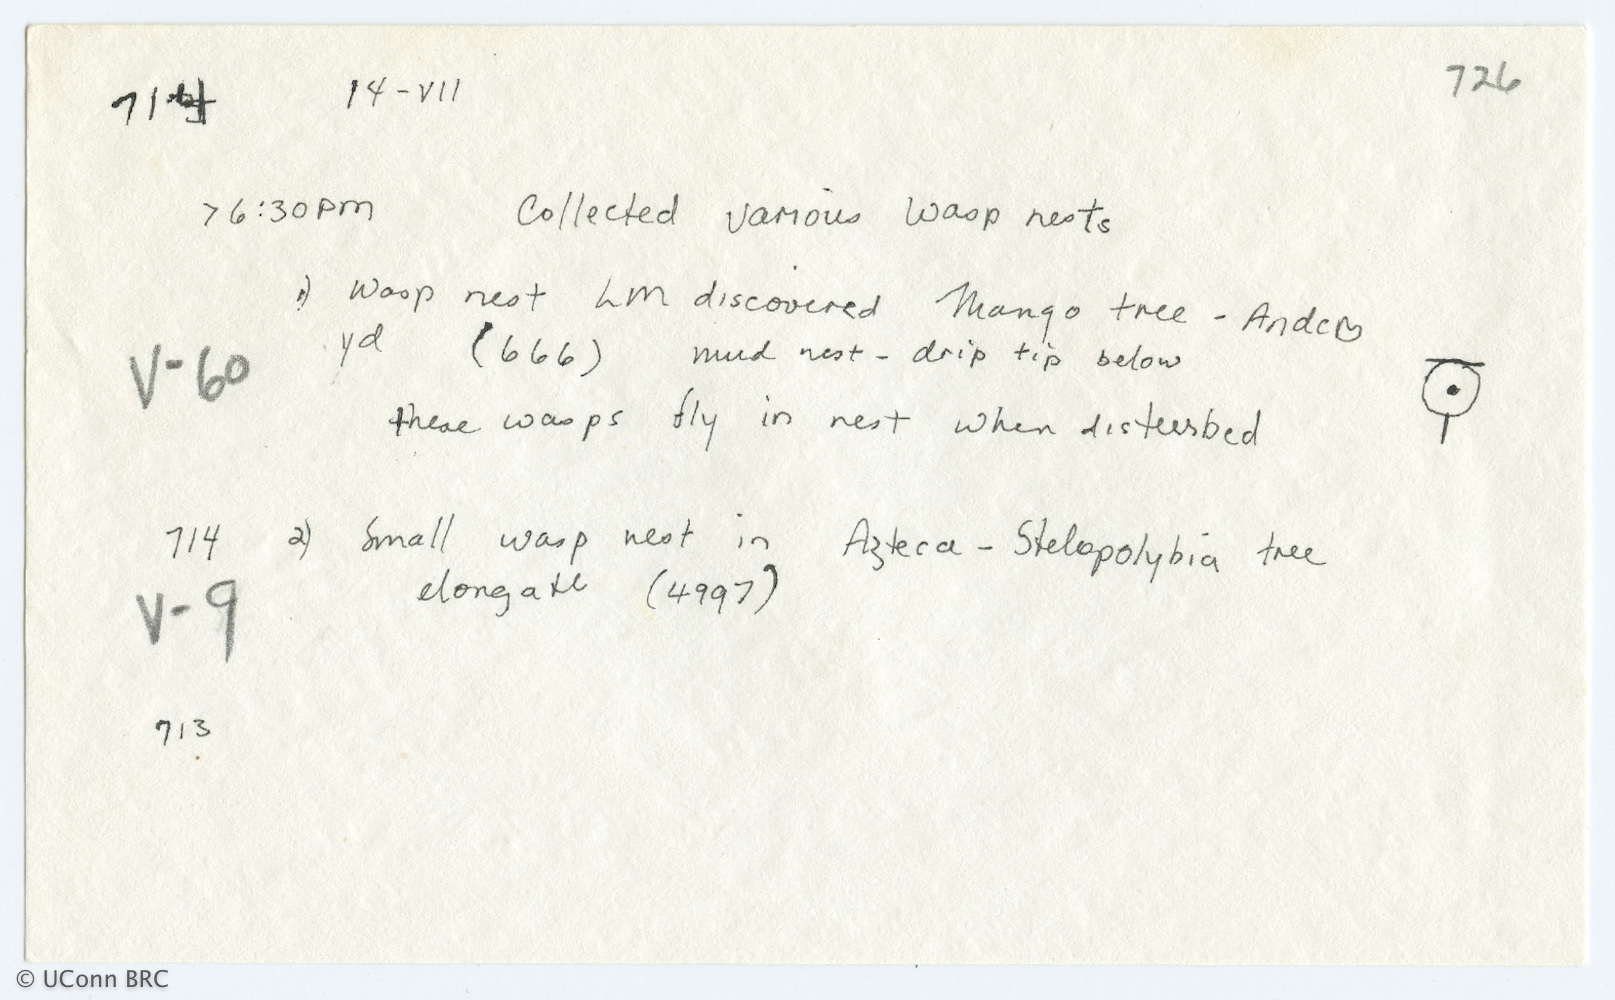 14-VII 726
>6:30pm Collected various wasp nests
1) Wasp nest LM discovered Mango tree -
yd (666) mud nest - drip tip below
V-60
these wasps fly in nest when disteerbed
714 2) Small wasp nest in Azteca - Stelopolybia tree
elongate (4997)
V-9
713
© UConn BRC